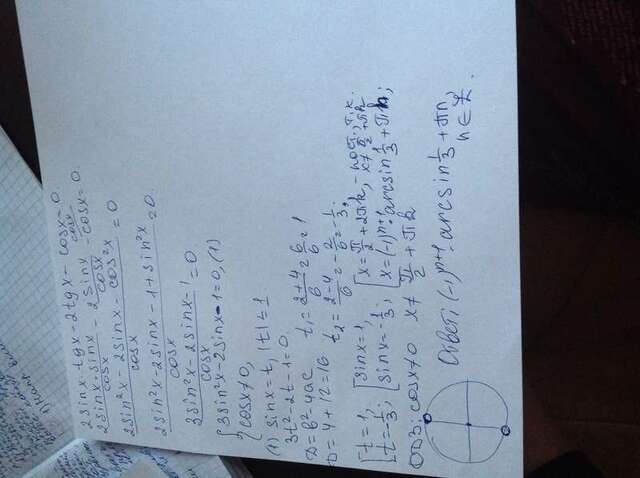 2sinx·tgx-2tgx-cosx=0.
2sinx·sinx/cosx - 2sinx/cosx - cosx=0.
2sin²x-2sinx-cos²x/cosx =0
2sin²x-2sinx-1+sin²x/cosx =0.
3sin²x-2sinx-1/cosx =0
{3sin²x-2sinx-1=0, (1)
{cosx≠0,
(1) sinx=t, |t|≤1
3t²-2t-1=0,
D=b²-4ac
D=4+12=16 t₁=2+4/6=6/6=1
t₂=2-4/6=-2/6=-1/3.
[t=1, [sinx=1, [x=π/2+2πk, -
[t=-1/3; [sinx=-1/3; [x=(-1)ⁿ⁺¹·arcsin1/3+πn;
ОДЗ: cosx≠0 x≠π/2+πk
Ответ: (-1)ⁿ⁺¹·arcsin1/3+πn,
n∈Z.